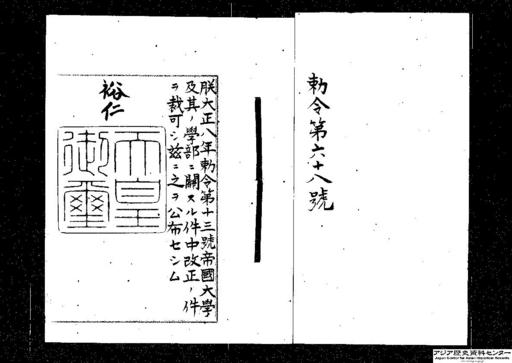 勅令第六十八號
朕大正八年勅令第十三號帝國大學
及其ノ學部ニ關スル件中改正ノ件
ヲ裁可シ茲ニ之ヲ公布セシム
裕仁
天皇
御璽
アジア歴史資料センター
Japan Center for Asian Historical Records